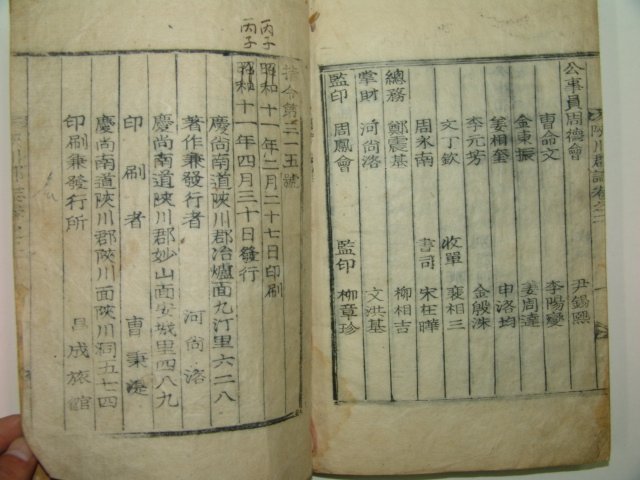 公事員周德會 尹錫熙
曹命文 李陽燮
金東振 姜周達
姜相奎 申洛均
李元芳 金殷洙
文丁欽 收單 裵相三
周永南 書司 宋在曄
總務 鄭震基 柳相吉
掌財 河尚洛 文洪基
監印 周鳳會 監印 柳章珍
陜川郡誌卷之二
丙子
丙子
指令第三一五號
昭和十一年二月二十七日印刷
昭和十一年四月三十日發行
慶尚南道陜川郡冶爐面九汀里六二八
著作兼發行者 河尚洛
慶尚南道陜川郡妙山面安城里四八九
印刷者 曹秉
慶尚南道陜川郡陜川面陜川洞五七四
印刷兼發行所 昌成旅館